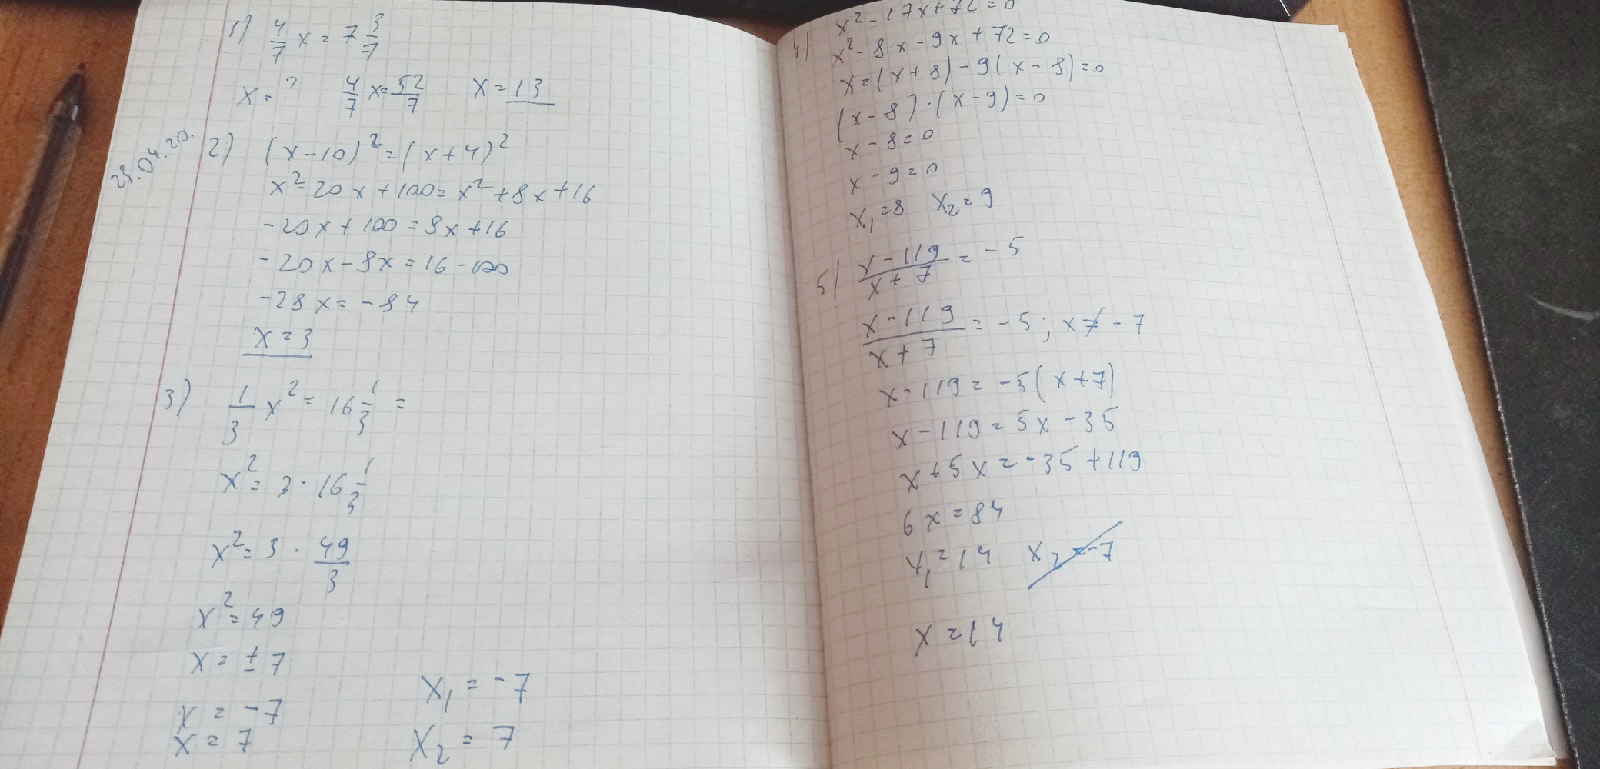 1) 4/7 x = 7 3/7
x = ? 4/7 x = 52/7 x = 13
28.04.20.
2) (x-10)² = (x+4)²
x² = 20x + 100 = x² + 8x + 16
-20x + 100 = 8x + 16
-20x - 8x = 16 - 100
-28x = -84
x = 3
3) 1/3 x² = 16 1/3 =
x² = 3 · 16 1/3
x² = 3 · 49/3
x² = 49
x = ± 7
x = -7
x = 7
x₁ = -7
x₂ = 7
4) x² - 17x + 72 = 0
x² - 8x - 9x + 72 = 0
x = (x + 8) - 9(x - 8) = 0
(x - 8) · (x - 9) = 0
x - 8 = 0
x - 9 = 0
x₁ = 8 x₂ = 9
5) x - 119 / x + 7 = -5
x - 119 / x + 7 = -5; x ≠ -7
x - 119 = -5(x + 7)
x - 119 = 5x - 35
x + 5x = -35 + 119
6x = 84
x₁ = 14 x₂ = -7
x = 14